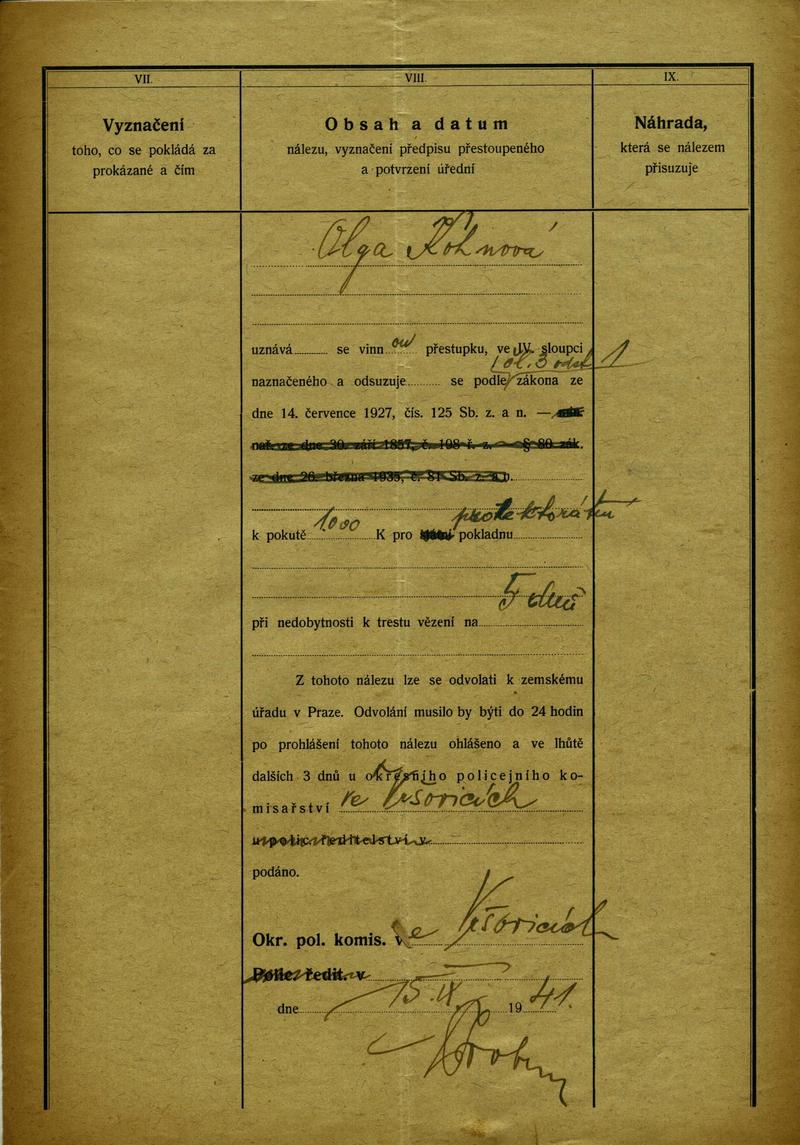 VII.
VIII.
IX.
Vyznačení
toho, co se pokládá za
prokázané a čím
Obsah a datum
nálezu, vyznačení předpisu přestoupeného
a potvrzení úřední
Náhrada,
která se nálezem
přisuzuje
Olga Kohnová
uznává se vinnou přestupku, ve IV. sloupci
naznačeného a odsuzuje se podle zákona ze
dne 14. července 1927, čís. 125 Sb. z. a n. —
nař. ze dne 30. září 1857, č. 198 ř. z. — § 80 zák.
ze dne 26. března 1935, č. 51 Sb. z. a n.
protektorátu
k pokutě 1000 K pro pokladnu
5 dnů
při nedobytnosti k trestu vězení na
Z tohoto nálezu lze se odvolati k zemskému
úřadu v Praze. Odvolání musilo by býti do 24 hodin
po prohlášení tohoto nálezu ohlášeno a ve lhůtě
dalších 3 dnů u okresního policejního ko-
misařství ve Vršovicích
u polic. ředitelství v
podáno.
Okr. pol. komis. ve Vršovicích
Polic. ředit. v
dne 15. IX. 1941.